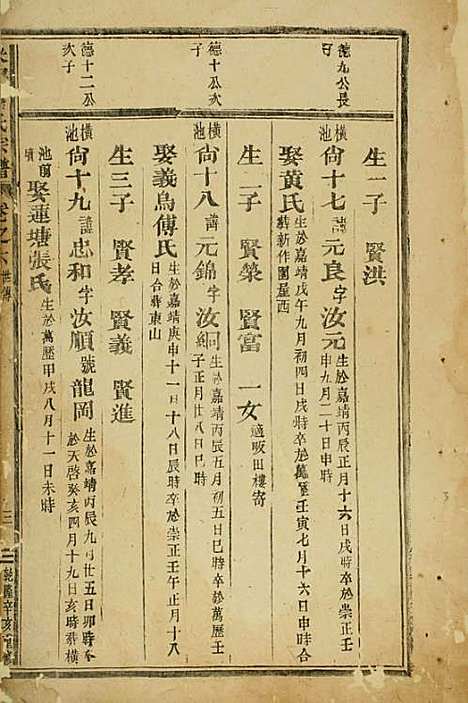 德九公長子
德十公次子
德十二公次子
生一子 賢洪
橫池 尙十七 諱 元良 字 汝元 生於嘉靖丙辰正月十六日戌時卒於崇正壬申九月二十日申時
娶黃氏 生於嘉靖戊午九月初四日戌時卒於萬歷壬寅七月十六日申時合葬新作園屋西
生二子 賢榮 賢富 一女 適畈田樓寄
橫池 尙十八 諱 元錦 字 汝 生於嘉靖丙辰五月初五日巳時卒於萬歷壬子正月廿八日巳時
娶義烏傅氏 生於嘉靖庚申十一月十八日辰時卒於崇正壬午正月十八日合葬東山
生三子 賢孝 賢義 賢進
橫池 尙十九 諱 忠和 字 汝順 號 龍岡 生於嘉靖丙辰九月廿五日卯時卒於天啓癸亥四月十九日亥時葬橫池前墳
娶蓮塘張氏 生於萬歷甲戌八月十一日未時
氏宗譜 卷之六 世傳 三 乾隆辛亥